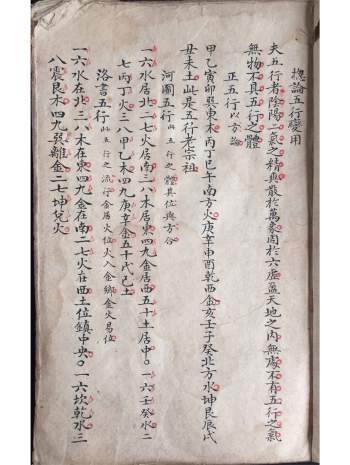 總論五行變用
夫五行者陰陽二氣之精典散於萬彙周於六虛蓋天地之內無處不有五行之氣
無物不具五行之體
正五行以方論
甲乙寅卯巽東木丙丁巳午南方火庚辛申酉乾西金亥壬子癸北方水坤艮辰戌
丑未土此是五行老宗祖
河圖五行此五行之體其位與方合
一六水居北二七火居南三八木居東四九金居西五十土居中○一六壬癸水二
七丙丁火三八甲乙木四九庚辛金五十戊己土
洛書五行此五行之流行金居火位火入金鄉金火易位
一六水在北三八木在東四九金在南二七火在西土位鎮中央○一六坎乾水三
八震艮木四九巽離金二七坤兌火